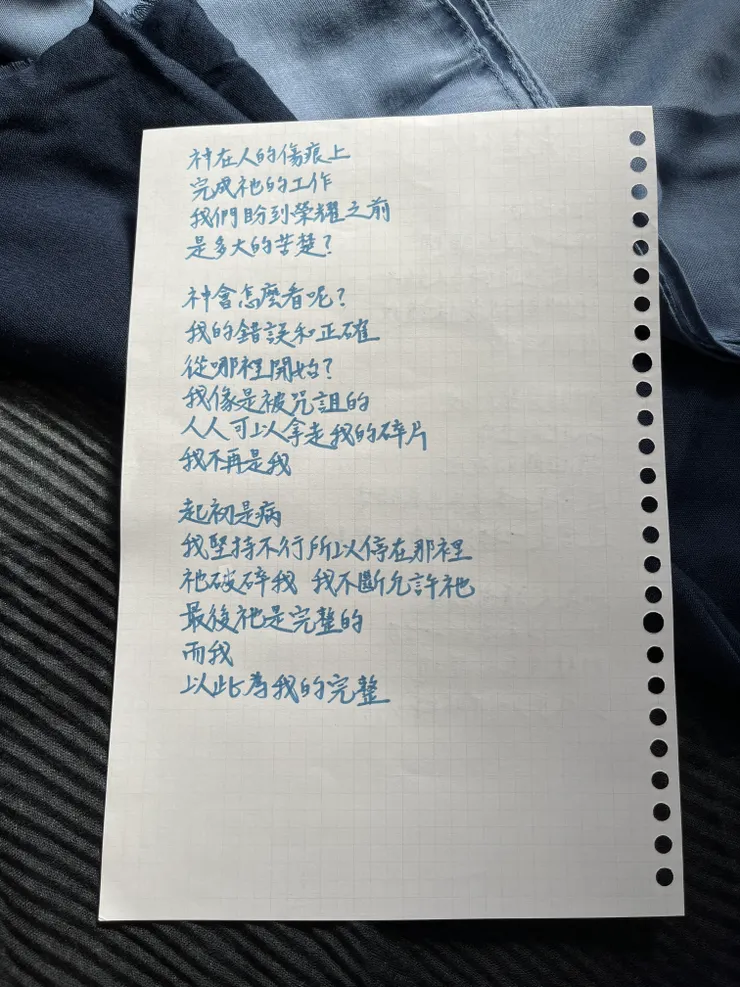 神在人的傷痕上
完成祂的工作
我們盼到榮耀之前
是多大的苦楚?
神會怎麼看呢?
我的錯誤和正確
從哪裡開始?
我像是被咒詛的
人人可以拿走我的碎片
我不再是我
起初是病
我堅持不行所以停在那裡
祂破碎我 我不斷允許祂
最後祂是完整的
而我
以此為我的完整